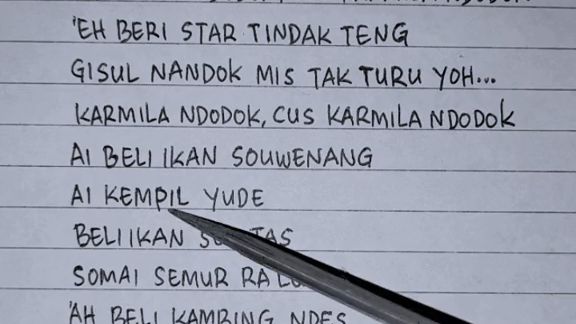 'EH BERI STAR TINDAK TENG
GISUL NANDOK MIS TAK TURU YOH...
KARMILA NDODOK, CUS KARMILA NDODOK
AI BELI IKAN SOUWENANG
AI KEMPIL YUDE
BELI IKAN
SOMAI SEMUR
'AH BELI KAMBING NDES